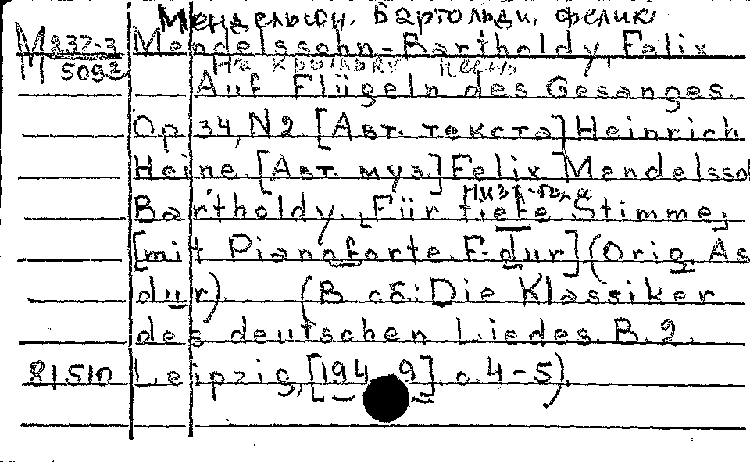 Мендельсон, Бартольди, Феликс
М 237-3 Mendelssohn-Bartholdy, Felix
М 5093 На крыльях песнь
Auf Flügeln des Gesanges.
Op. 34, N2. [Авт. текста] Heinrich
Heine. [Авт. муз.] Felix Mendelsso
Bartholdy. [Für tiefe Stimme,
[mit Pianoforte. F-dur] (Orig. As
dur). (В сб: Die Klassiker
des deutschen Liedes. B. 2.
81510 Leipzig, [194 9]. с. 4-5).